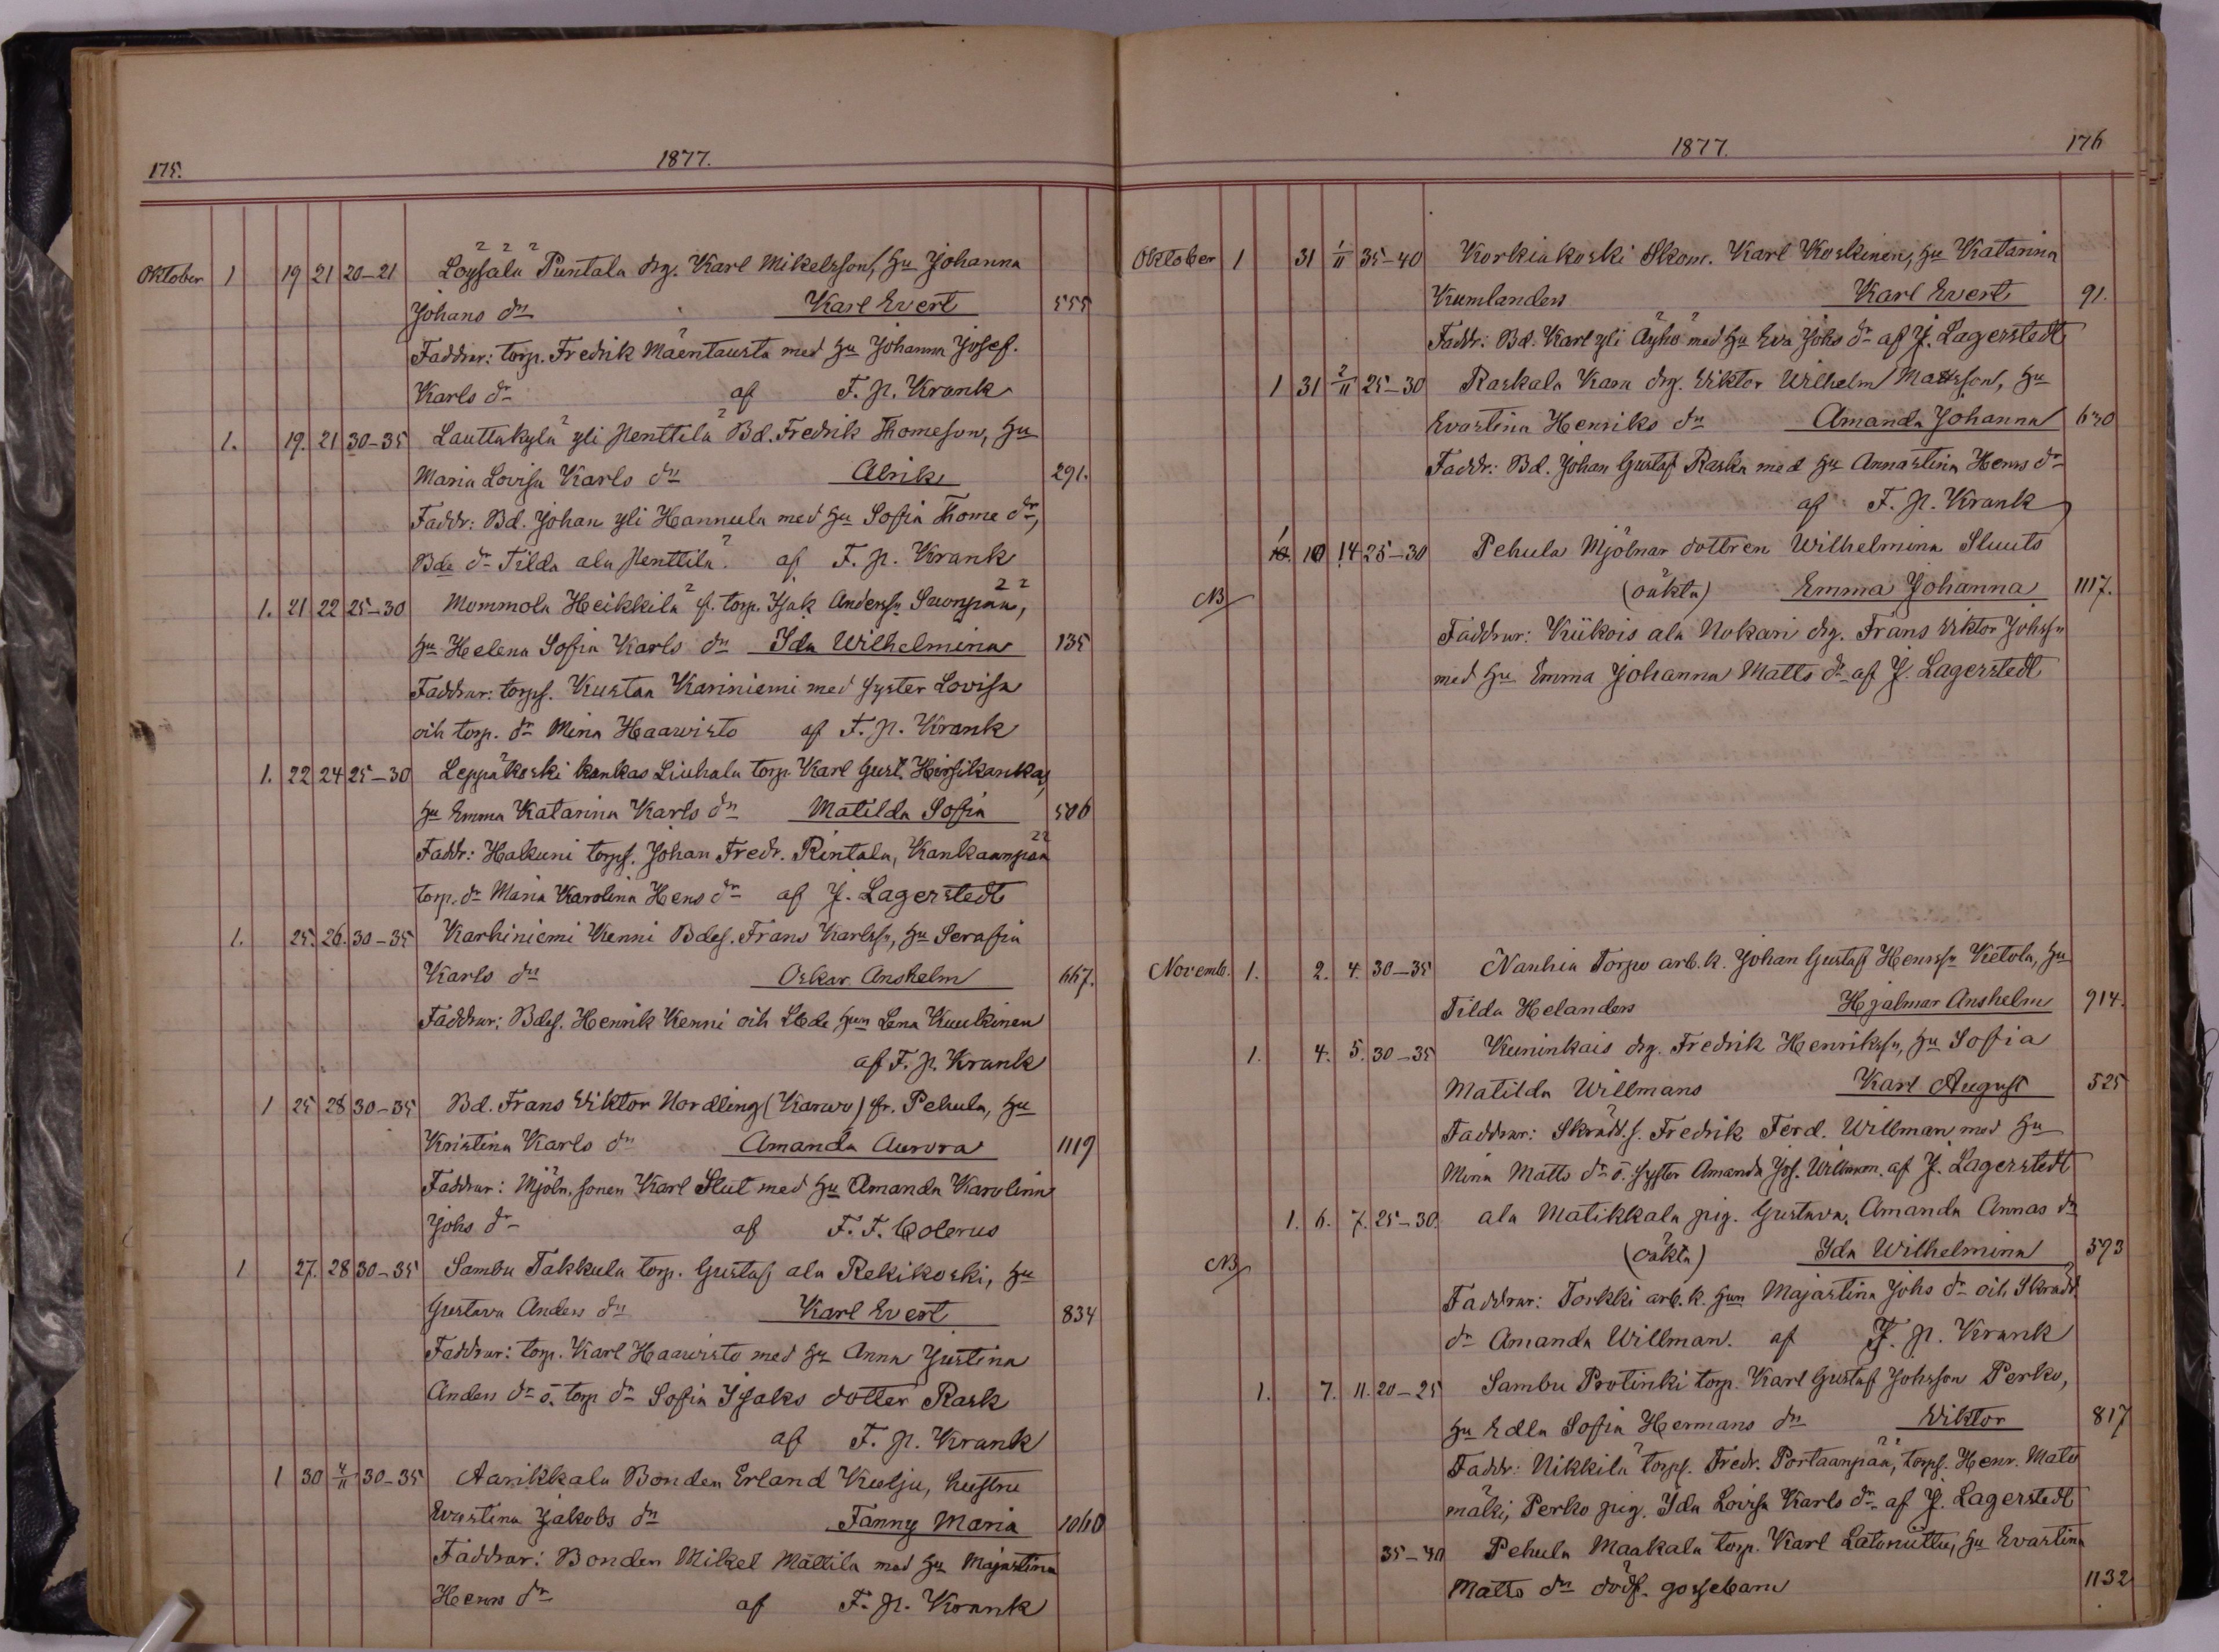 175.
1877.
Oktober 1 19 21 20–21 Loysälä Puntala drg. Karl Mikelsson, hu Johanna
Johans dr Karl Evert 555
Faddrar: torp. Fredrik Mäentausta med hu Johanna Josef.
Karls dr af F. P. Krank
1. 19. 21 30–35 Lauttakylä yli Penttilä Bd. Fredrik Thomeson, hu
Maria Lovisa Karls dr Alrik 291.
Faddr: Bd. Johan yli Hannula med hu Sofia Thome dr,
Bde dr Tilda ala Penttilä. af F. P. Krank
1. 21 22 25–30 Mommola Heikkilä f. torp. Isak Anderss Suonpää,
hu Helena Sofia Karls dr Ida Wilhelmina 135
Faddrar: torps. Kustaa Kariniemi med syster Lovisa
och torp. dr Mina Haawisto af F. P. Krank
1. 22 24 25–30 Leppäkoski kankas Liuhala torp. Karl Gust. Hirsikankas,
hu Emma Katarina Karls dr Matilda Sofia 506
Faddr: Hakuni torps. Johan Fredr. Rintala, Kankaanpää
torp. dr Maria Karolina Hens dr af J. Lagerstedt
1. 25. 26. 30–35 Karhiniemi Kenni Bdes. Frans Karlss, hu Serafia
Karls dr Oskar Anshelm 667.
Faddrar: Bdes. Henrik Kenni och Lbde hun Lena Kuukinen
af F. P. Krank
1 25 28 30–35 Bd. Frans Viktor Nordling (Karwo) fr. Pehula, hu
Kristina Karls dr Amanda Aurora 1119
Faddrar: Mjöln. sonen Karl Slut med hu Amanda Karolina
Johs dr af F. F. Colerus
1 27. 28 30–35 Sambu Takkula torp. Gustaf ala Rekikoski, hu
Gustava Anders dr Karl Evert 834
Faddrar: torp. Karl Haawisto med hu Anna Justina
Anders dr o. torp dr Sofia Isaks dotter Rask
af F. P. Krank
1 30 4/11 30–35 Aarikkala Bonden Erland Kulju, hustru
Evastina Jakobs dr Fanny Maria 1060
Faddrar: Bonden Mikel Mattila med hu Majastina
Henrs dr af F. P. Krank
1877.
176
Oktober 1 31 1/11 35–40 Korkiakoski Skom. Karl Koskinen, hu Katarina
Kumlanders Karl Evert 91.
Faddr: Bd. Karl yli Äyhö med hu Eva Johs dr af J. Lagerstedt
1 31 2/11 25–30 Raskala Kasa drg. Viktor Wilhelm Mattsson, hu
Evastina Henriks dr Amanda Johanna 630
Faddr: Bd. Johan Gustaf Raska med hu Annastina Henrs dr
af F. P. Krank
1 10 14 25–30 Pehula Mjölnar dottren Wilhelmina Sluuts
NB (oäkta) Emma Johanna 1117.
Faddrar: Kiikois ala Nokari drg. Frans Viktor Johss
med hu Emma Johanna Matts dr af J. Lagerstedt
Novemb. 1. 2. 4. 30–35 Nanhia Torpo arb. k. Johan Gustaf Henrss Ketola, hu
Tilda Helanders Hjalmar Anshelm 914.
1. 4. 5. 30–35 Kuninkais drg. Fredrik Henrikss, hu Sofia
Matilda Willmans Karl August 525
Faddrar: Skrädd. s. Fredrik Ferd. Willman med hu
Mina Matts dr o. syster Amanda Jos. Willman. af J. Lagerstedt
1. 6. 7. 25–30. ala Matikkala pig. Gustava, Amanda Annas dr
NB (oäkta) Ida Wilhelmina 593
Faddrar: Torkki arb. k. hun Majastina Johs dr och Skrädd.
dr Amanda Willman. af F. P. Krank
1. 7. 11. 20–25 Sambu Protinki torp. Karl Gustaf Johsson Perko,
hu Edla Sofia Hermans dr Viktor 817
Faddr: Nikkilä torps. Fredr. Portaanpää, torps. Henr. Mato
mäki, Perko pig. Ida Lovisa Karls dr af J. Lagerstedt
35–40 Pehula Maakala torp. Karl Latoniittu, hu Evastina
Matts dr dödf. gossebarn 1132